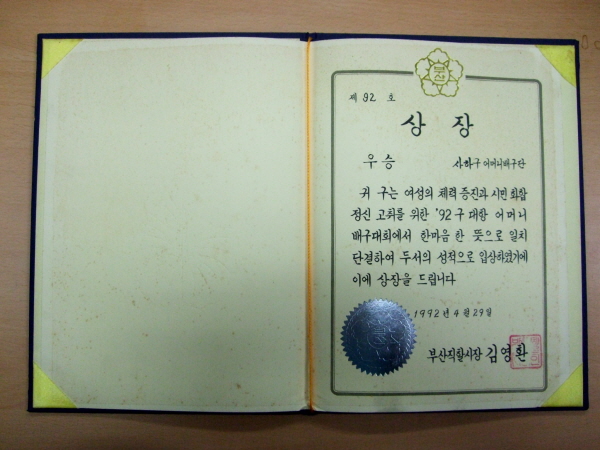 부산
제 92 호
상 장
우 승 사하구 어머니배구단
귀 구는 여성의 체력 증진과 시민 화합
정신 고취를 위한 '92 구 대항 어머니
배구대회에서 한마음 한 뜻으로 일치
단결하여 두서의 성적으로 입상하였기에
이에 상장을 드립니다
1992년 4월 29일
부산직할시장 김영환